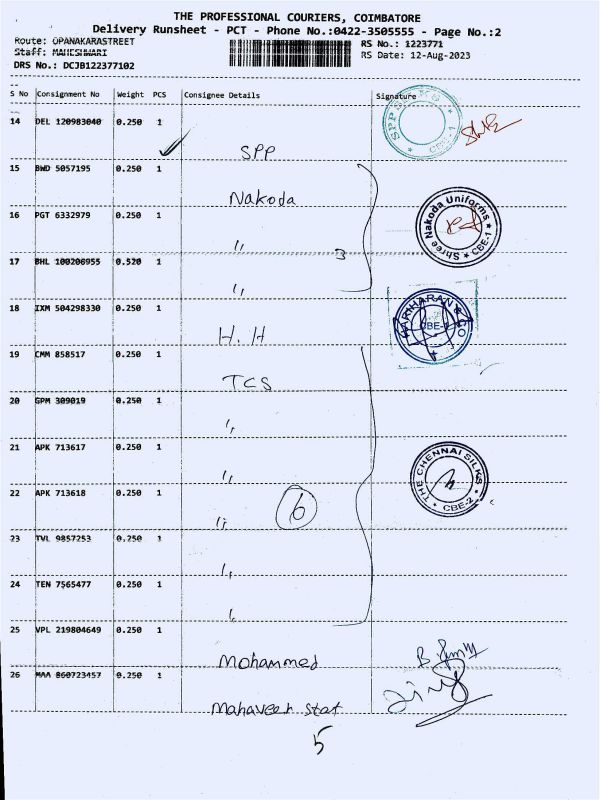 THE PROFESSIONAL COURIERS, COIMBATORE
Delivery Runsheet - PCT - Phone No.:0422-3505555 - Page No.:2
Route: OPANAKARASTREET
RS No.: 1223771
Staff: MAHESHWARI
RS Date: 12-Aug-2023
DRS No.: DCJB122377102
S No Consignment No Weight PCS Consignee Details Signature
14 DEL 120983040 0.250 1
SPP
SPP SILKS
CBE-1
15 BWD 5057195 0.250 1
Nakoda
16 PGT 6332979 0.250 1
Shree Nakoda Uniforms
CBE-1
"
3
17 BHL 100206955 0.520 1
"
18 IXM 504298330 0.250 1
H.H
HARIHARAN & CO
CBE-
19 CMM 858517 0.250 1
TCS
20 GPM 309019 0.250 1
"
21 APK 713617 0.250 1
"
THE CHENNAI SILKS
CBE-2
22 APK 713618 0.250 1
"
6
23 TVL 9857253 0.250 1
"
24 TEN 7565477 0.250 1
"
25 VPL 219804649 0.250 1
Mohammed
26 MAA 860723457 0.250 1
Mahaveer Stat
5